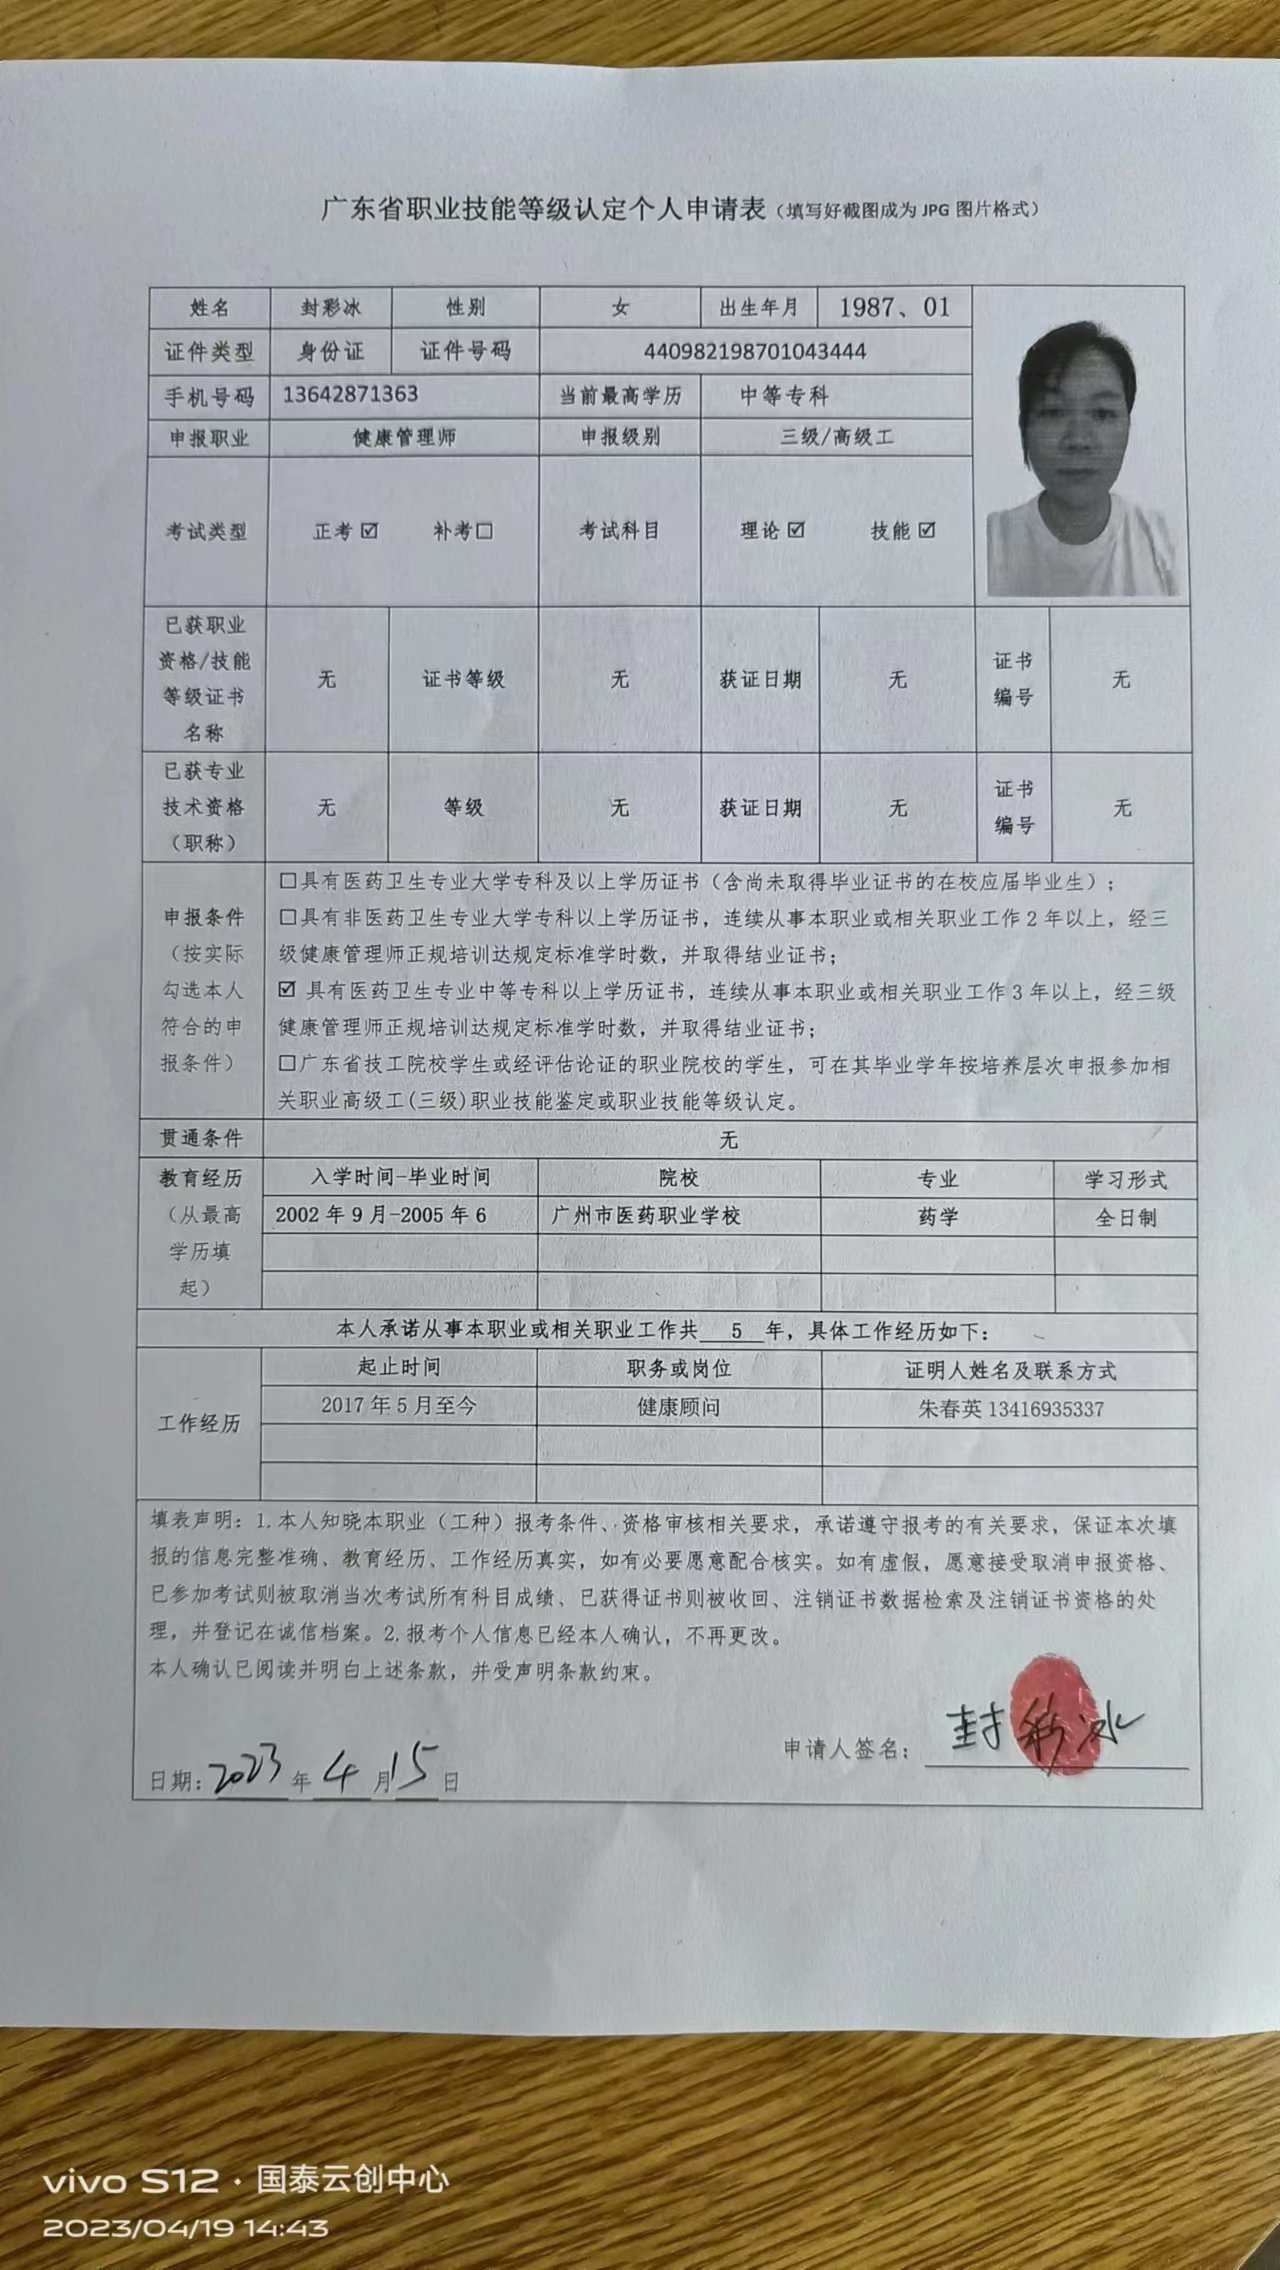 广东省职业技能等级认定个人申请表（填写好截图成为 JPG 图片格式）
姓名 封彩冰 性别 女 出生年月 1987、01
证件类型 身份证 证件号码 440982198701043444
手机号码 13642871363 当前最高学历 中等专科
申报职业 健康管理师 申报级别 三级/高级工
考试类型 正考☑ 补考☐ 考试科目 理论☑ 技能☑
已获职业
资格/技能
等级证书
名称
无 证书等级 无 获证日期 无
证书
编号
无
已获专业
技术资格
（职称）
无 等级 无 获证日期 无
证书
编号
无
申报条件
（按实际
勾选本人
符合的申
报条件）
☐具有医药卫生专业大学专科及以上学历证书（含尚未取得毕业证书的在校应届毕业生）；
☐具有非医药卫生专业大学专科以上学历证书，连续从事本职业或相关职业工作 2 年以上，经三
级健康管理师正规培训达规定标准学时数，并取得结业证书；
☑ 具有医药卫生专业中等专科以上学历证书，连续从事本职业或相关职业工作 3 年以上，经三级
健康管理师正规培训达规定标准学时数，并取得结业证书；
☐广东省技工院校学生或经评估论证的职业院校的学生，可在其毕业学年按培养层次申报参加相
关职业高级工(三级)职业技能鉴定或职业技能等级认定。
贯通条件 无
教育经历
（从最高
学历填
起）
入学时间-毕业时间 院校 专业 学习形式
2002 年 9 月-2005 年 6 广州市医药职业学校 药学 全日制
本人承诺从事本职业或相关职业工作共 5 年，具体工作经历如下：
工作经历
起止时间 职务或岗位 证明人姓名及联系方式
2017 年 5 月至今 健康顾问 朱春英 13416935337
填表声明：1.本人知晓本职业（工种）报考条件、资格审核相关要求，承诺遵守报考的有关要求，保证本次填
报的信息完整准确、教育经历、工作经历真实，如有必要愿意配合核实。如有虚假，愿意接受取消申报资格、
已参加考试则被取消当次考试所有科目成绩、已获得证书则被收回、注销证书数据检索及注销证书资格的处
理，并登记在诚信档案。2.报考个人信息已经本人确认，不再更改。
本人确认已阅读并明白上述条款，并受声明条款约束。
申请人签名： 封彩冰
日期: 2023 年 4 月 15 日
vivo S12 · 国泰云创中心
2023/04/19 14:43